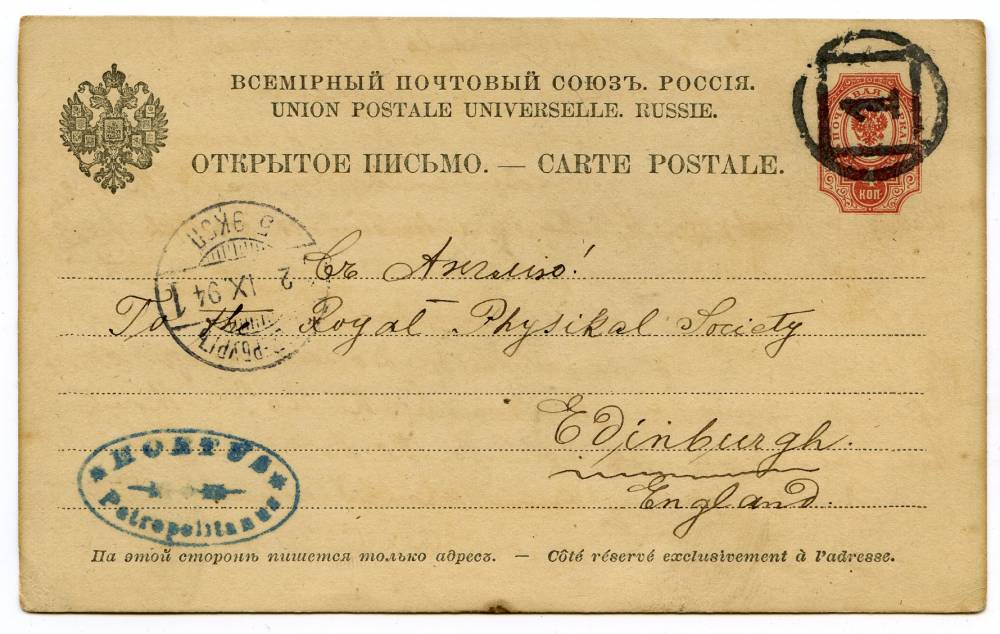 ВСЕМІРНЫЙ ПОЧТОВЫЙ СОЮЗЪ. РОССІЯ.
UNION POSTALE UNIVERSELLE. RUSSIE.
ОТКРЫТОЕ ПИСЬМО. — CARTE POSTALE.
ПОЧТОВАЯ МАРКА
4
КОП.
1
5 ЭКСП
2 IX 94
1
Съ Англію!
To the Royal Physikal Society
Edinburgh.
England.
HORTUS
Petropolitanus
На этой сторонѣ пишется только адресъ. — Côté réservé exclusivement à l'adresse.